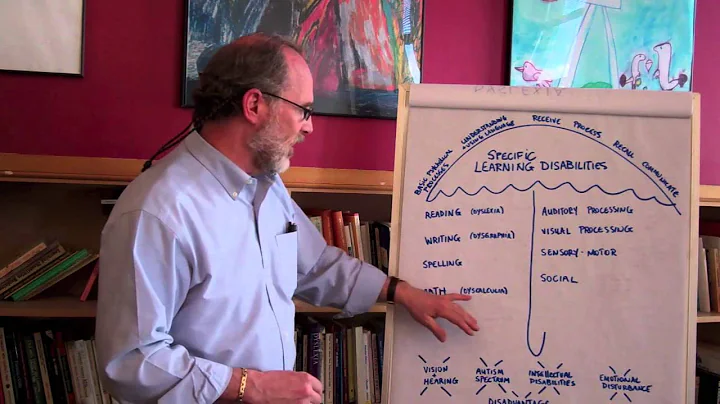 BASIC PSYCHOLOGICAL PROCESSES
UNDERSTANDING + USING LANGUAGE
RECEIVE PROCESS
RECALL COMMUNICATE
SPECIFIC
LEARNING DISABILITIES
READING (DYSLEXIA)
WRITING (DYSGRAPHIA)
SPELLING
MATH (DYSCALCULIA)
AUDITORY PROCESSING
VISUAL PROCESSING
SENSORY - MOTOR
SOCIAL
VISION + HEARING
AUTISM SPECTRUM
INTELLECTUAL DISABILITIES
EMOTIONAL DISTURBANCE
DISADVANTAGE